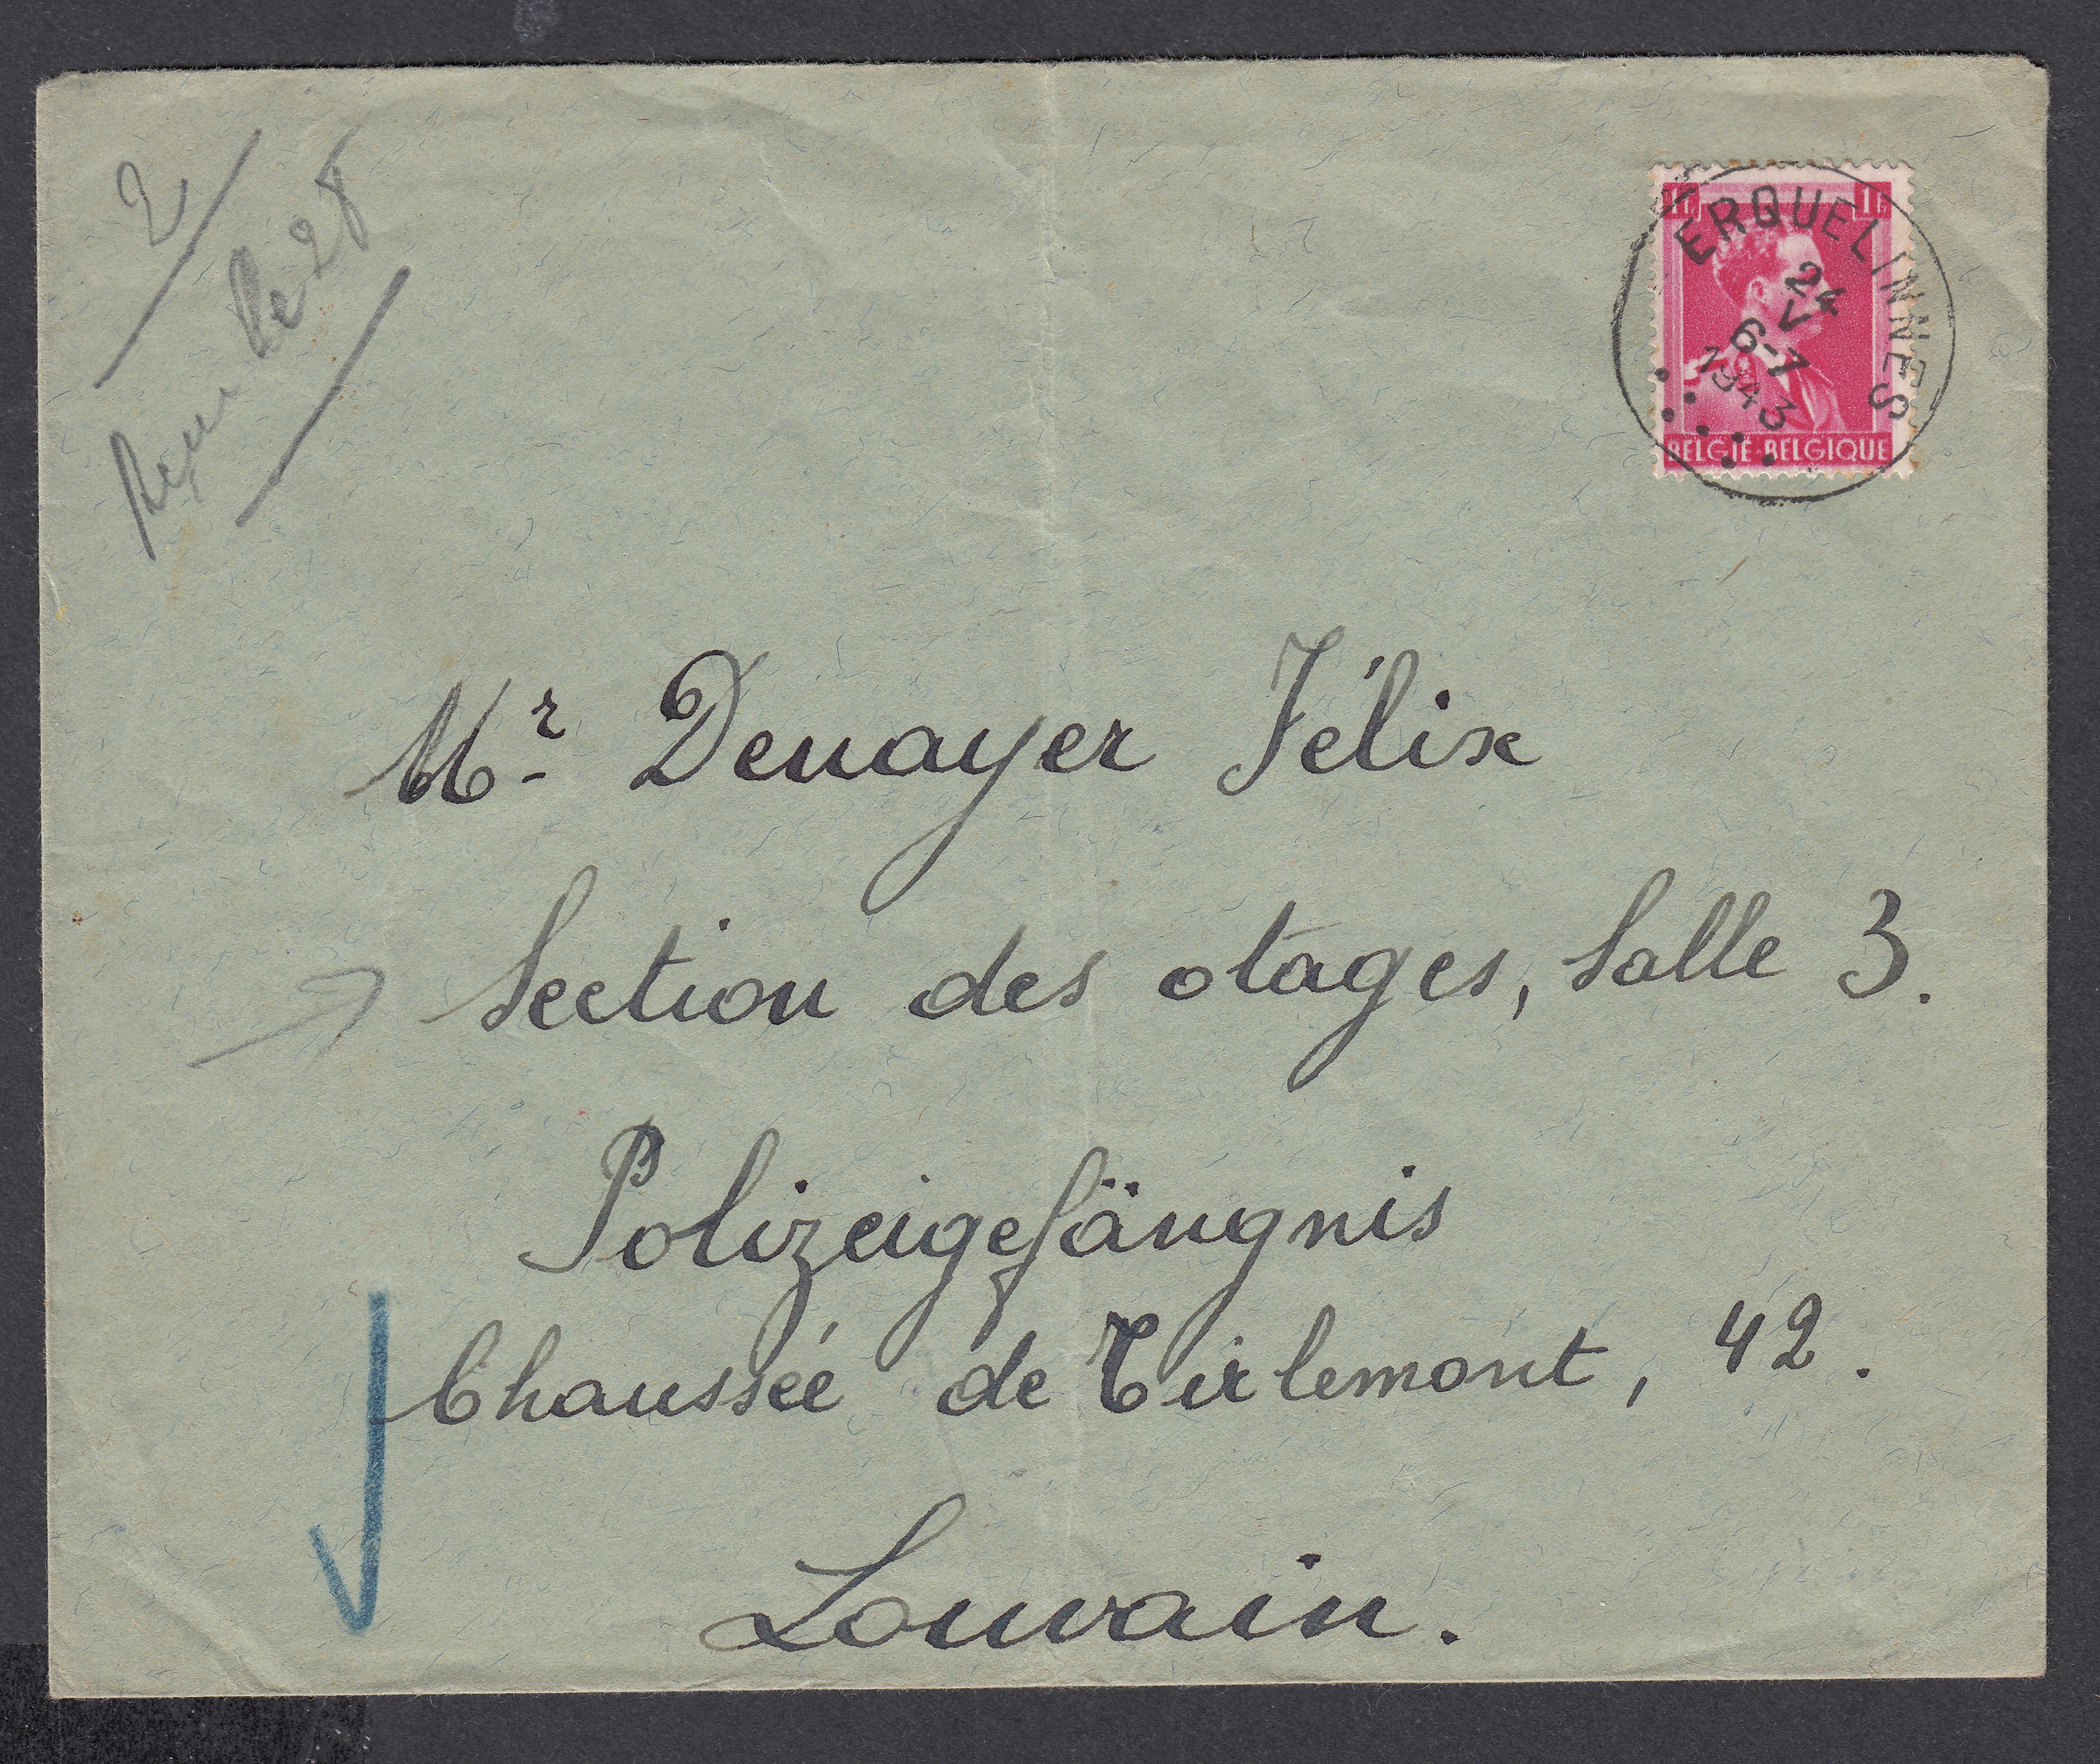 2
Reçu le 28
1f 1f
ERQUELINNES
24
V
6-7
1943
BELGIE-BELGIQUE
Mr Denayer Félix
Section des otages, Salle 3.
Polizeigefängnis
Chaussée de Tirlemont, 42.
Louvain.